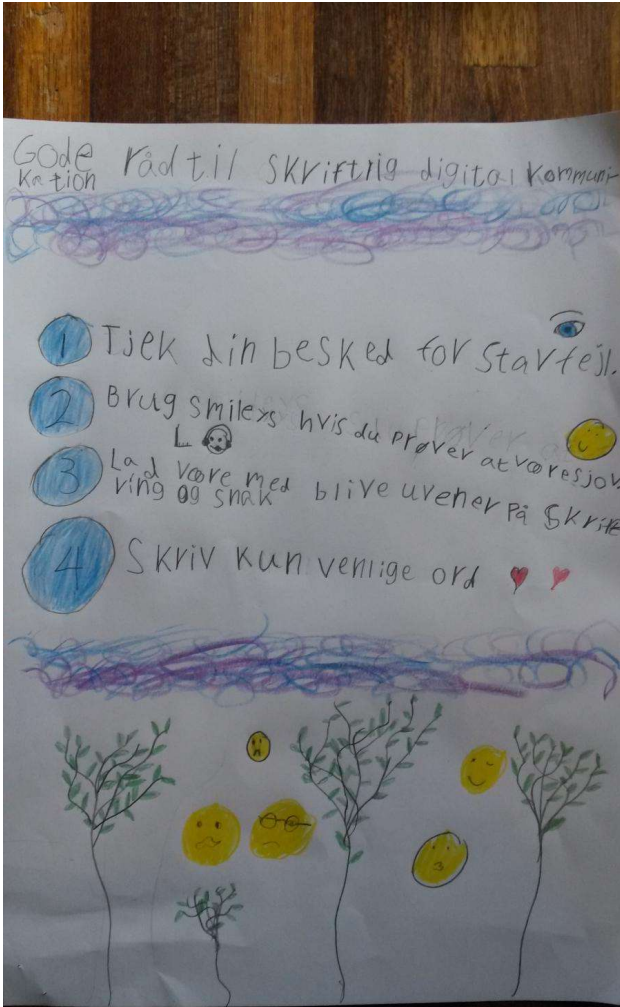 Gode råd til skriftrig digital kommuni-
kation
1 Tjek din besked for Stavfejl.
2 Brug smileys hvis du prøver at være sjov
3 Lad være med blive uvener på skrift
ring og snak
4 Skriv kun venlige ord